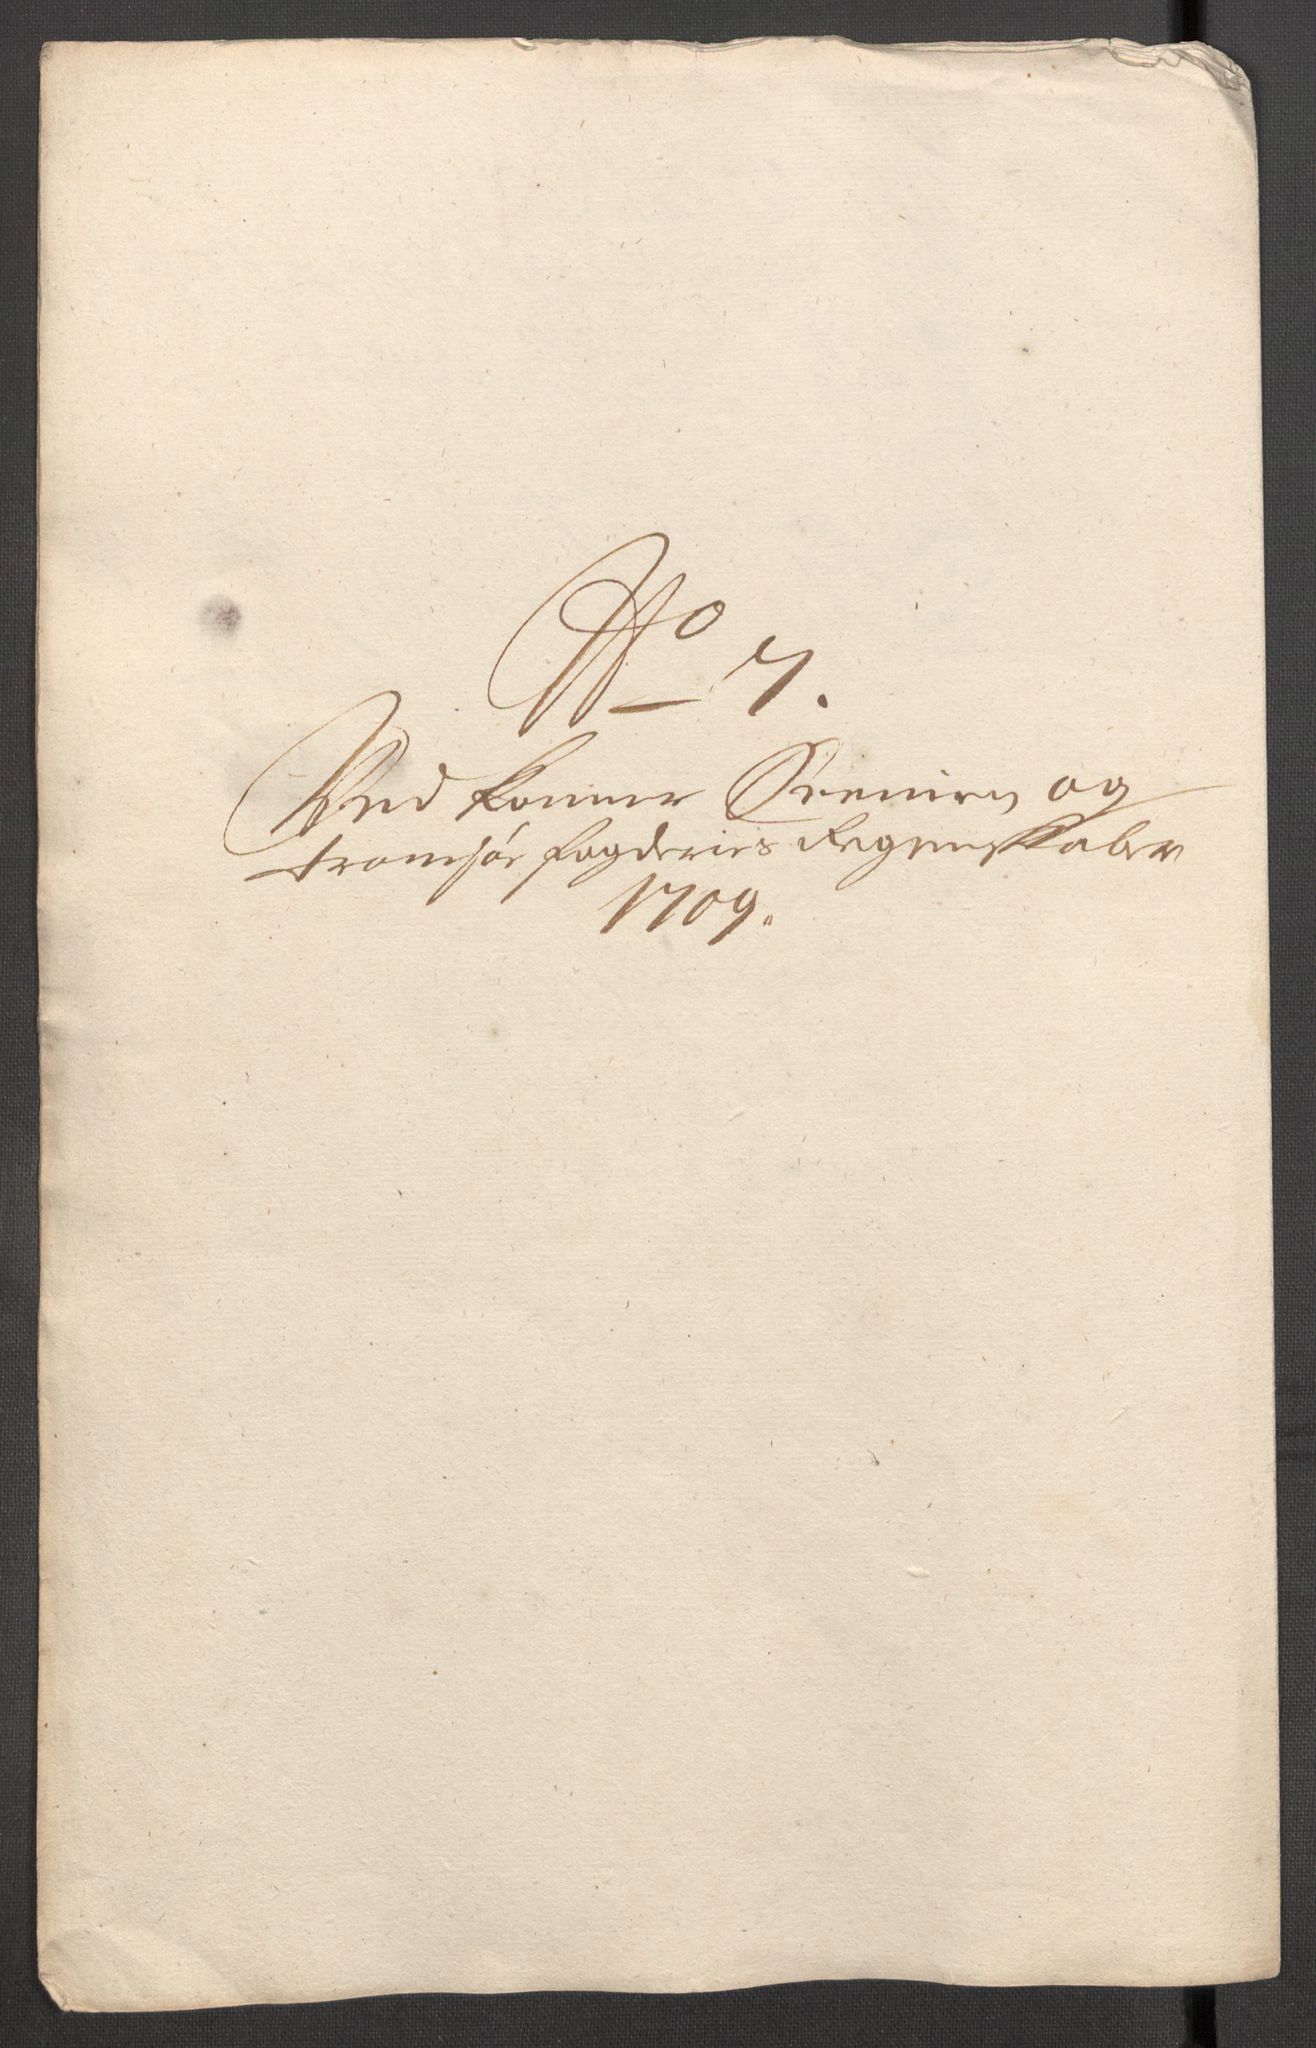 No 7.
Ved kommer Senniens og
tromsøe fogderies Regenskaber
1709.